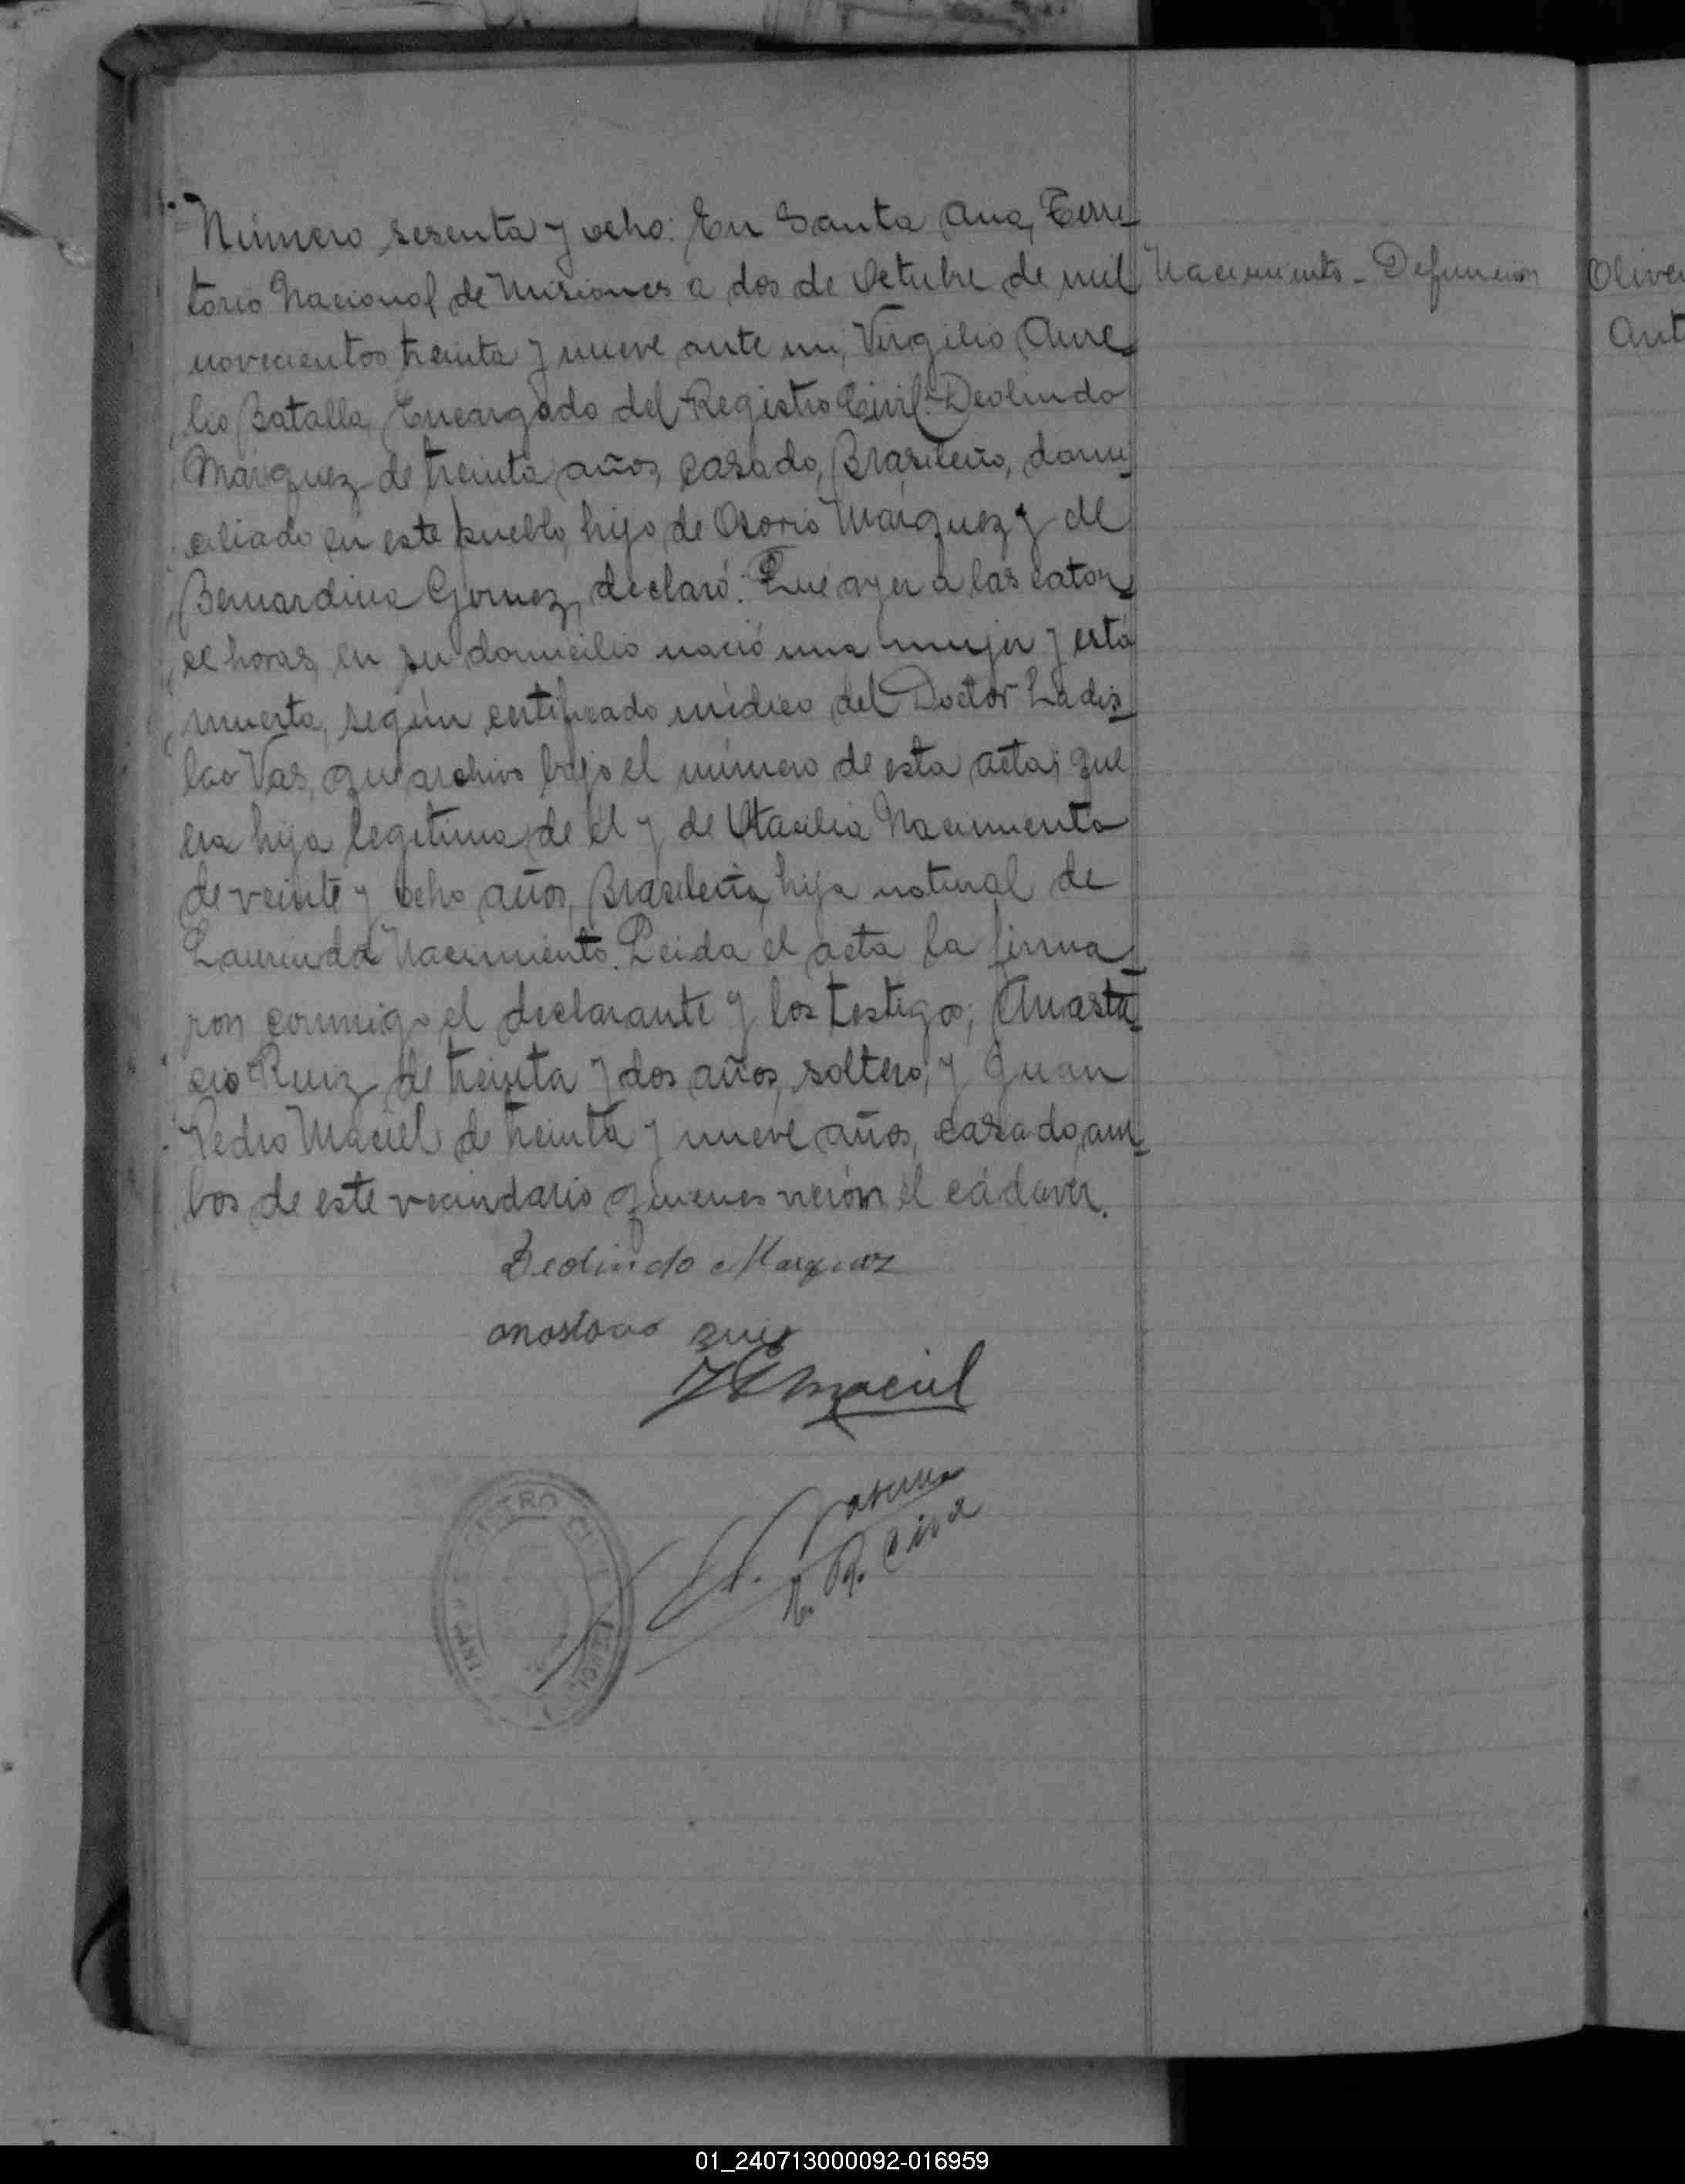 Número sesenta y ocho: En Santa Ana, Terri-
torio Nacional de Misiones a dos de Octubre de mil
novecientos treinta y nueve ante mi, Virgilio Aure-
lio Batalla, Encargado del Registro Civil: Deolindo
Márquez de treinta años, casado, Brasileño, domi-
ciliado en este pueblo, hijo de Osorio Márquez y de
Bernardina Gomez, declaró: Que ayer a las cator-
ce horas, en su domicilio nació una mujer y está
muerta, según certificado médico del Doctor Ladis-
lao Vas, que archivo bajo el número de esta acta; que
era hija legitima de él y de Otacilia Nacimiento
de veinte y ocho años, Brasileña, hija natural de
Laurinda Nacimiento. Leida el acta la firma-
ron conmigo el declarante y los testigos; Anasta-
cio Ruiz de treinta y dos años, soltero, y Juan
Pedro Maciel de treinta y nueve años, casado, am-
bos de este vecindario quienes vieron el cádaver.
Nacimiento - Defunción
Deolindo Marquez
Anastacio Ruiz
JP Maciel
REGISTRO CIVIL
Olive
Ant
01_240713000092-016959